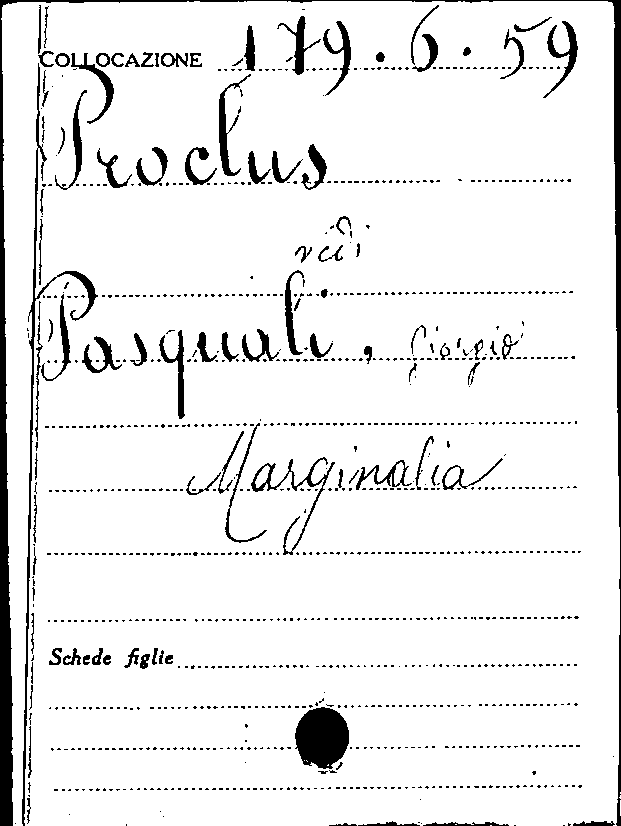 COLLOCAZIONE 179.6.59
Proclus
vedi
Pasquali, Giorgio
Marginalia
Schede figlie